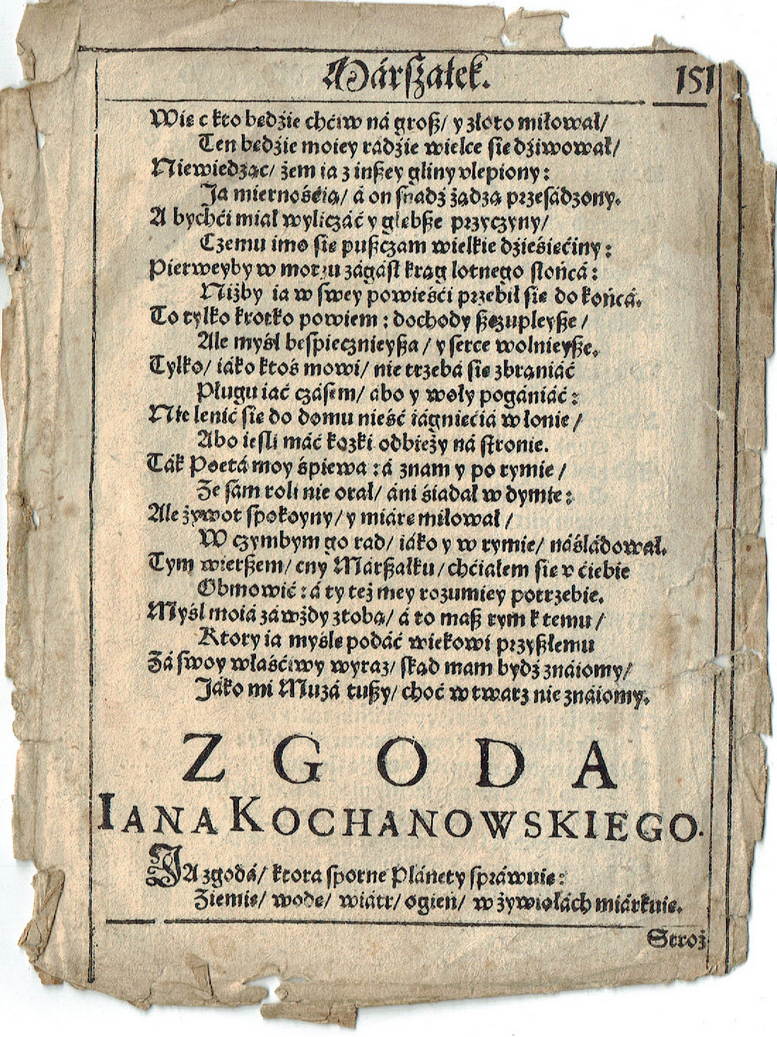 Márszałek.
151
Więc kto będzie chćiw ná grosz/ y złoto miłował/
Ten będzie moiey rádźie wielce się dźiwował/
Niewiedząc/ żem ia z inszey gliny vlepiony:
Ja miernośćią/ á on snadź żądzą przesádzony.
A bychći miał wyliczáć y głębsze przyczyny/
Czemu imo się puszczam wielkie dźieśięćiny:
Pierweyby w morzu zágasł krąg lotnego słońcá:
Niżby ia w swey powieśći przebił się do końcá.
To tylko krotko powiem: dochody szczupleysze/
Ale myśl bespiecznieysza/ y serce wolnieysze.
Tylko/ iáko ktoś mowi/ nie trzebá się zbraniáć
Pługu iąć czásem/ abo y woły pogániáć:
Nie lenić się do domu nieść iágnięćiá w łonie/
Abo iesli máć kozki odbieży ná stronie.
Ták Poetá moy śpiewa: á znam y po rymie/
Że sam roli nie orał/ áni śiadał w dymie:
Ale żywot spokoyny/ y miárę miłował/
W czymbym go rad/ iáko y w rymie/ náśládował.
Tym wierszem/ cny Márszałku/ chćiałem się v ćiebie
Obmowić: á ty też mey rozumiey potrzebie.
Myśl moiá záwżdy z tobą/ á to masz rym k temu/
Ktory ia myślę podáć wiekowi przyszłemu
Zá swoy właśćiwy wyraz/ skąd mam bydź znáiomy/
Jáko mi Muzá tuszy/ choć w twarz nie znáiomy.
ZGODA
IANA KOCHANOWSKIEGO.
JA zgodá/ ktora sporne Plánety spráwuię:
Ziemię/ wodę/ wiátr/ ogień/ w żywiołách miárkuię.
Stroż